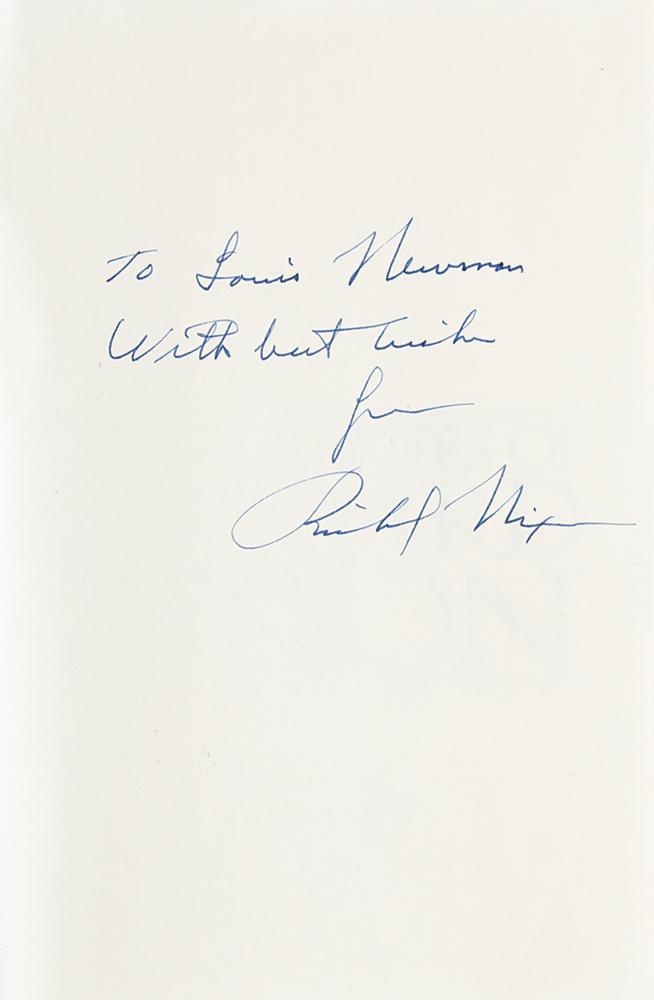 To Louis Newman
With best wishes
from
Richard Nixon